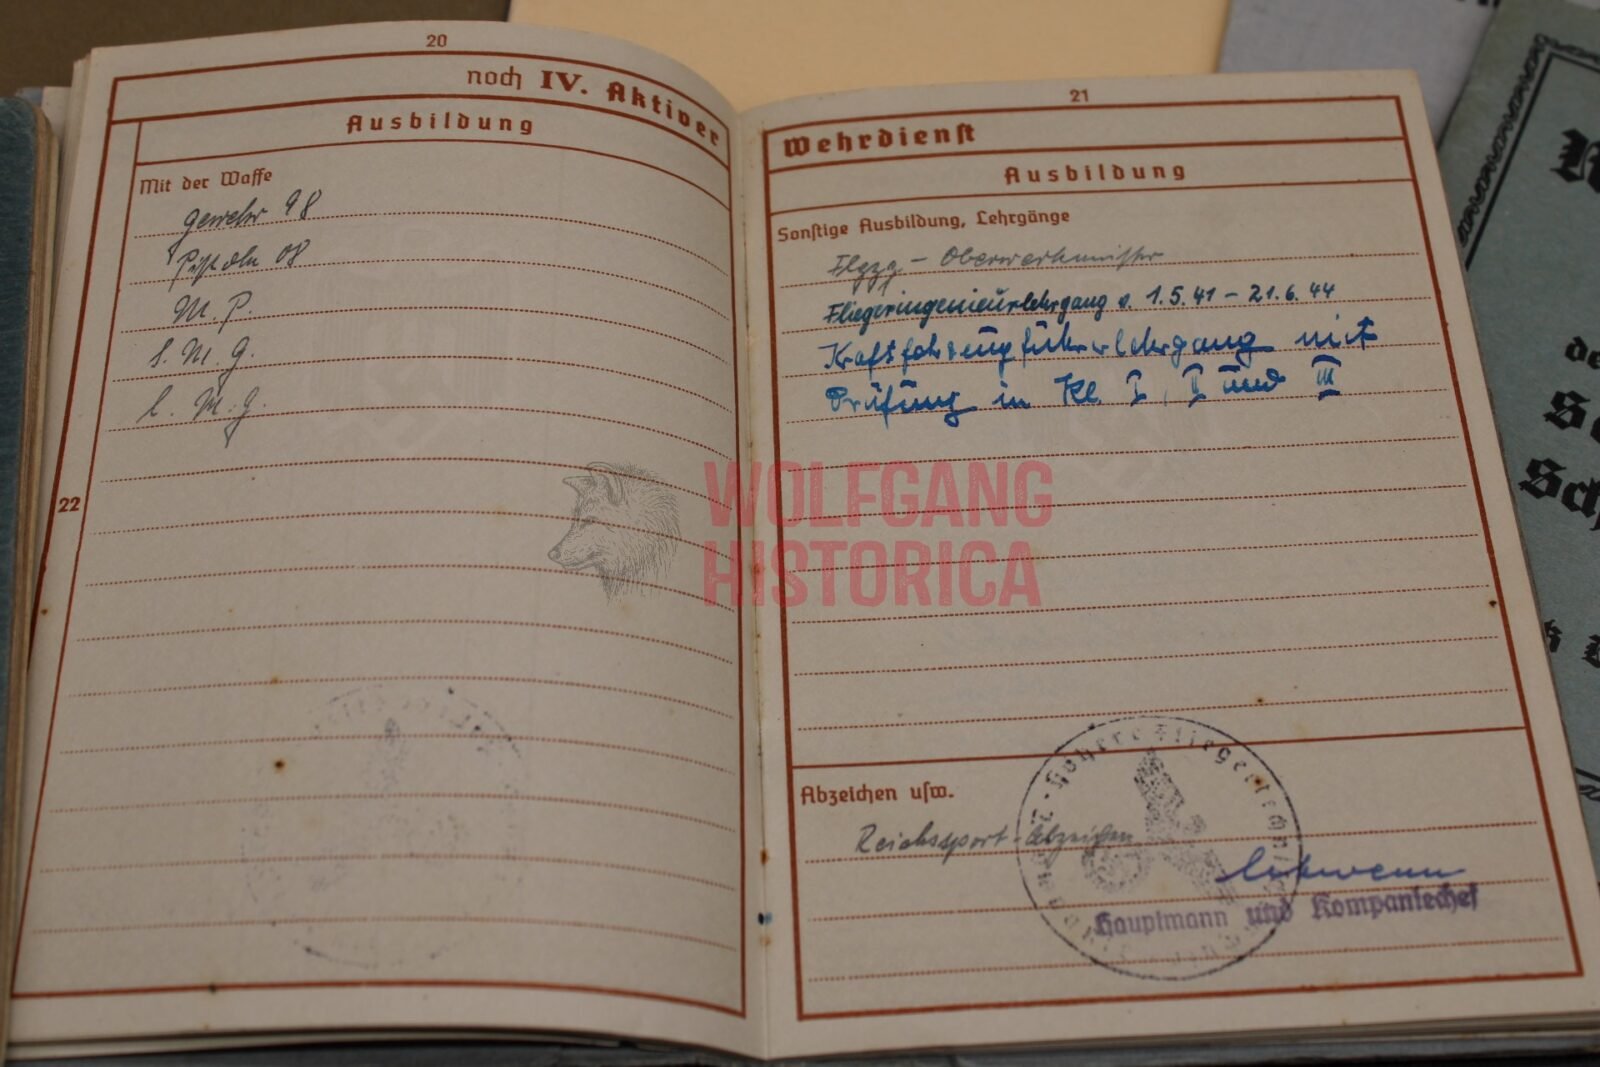 20
noch IV. Aktiver
Ausbildung
Mit der Waffe
Gewehr 98
Pistole 08
M. P.
s. M. G.
l. M. G.
22
21
Wehrdienst
Ausbildung
Sonstige Ausbildung, Lehrgänge
Flgzg - Oberwerkmeister
Fliegeringenieurlehrgang v. 1.5.41 - 21.6.44
Kraftfahrzeugführerlehrgang mit
Prüfung in Kl. I, II und III
WOLFGANG
HISTORICA
Abzeichen usw.
Reichssport-Abzeichen
Höhere Fliegertechn
Hauptmann und Kompaniechef